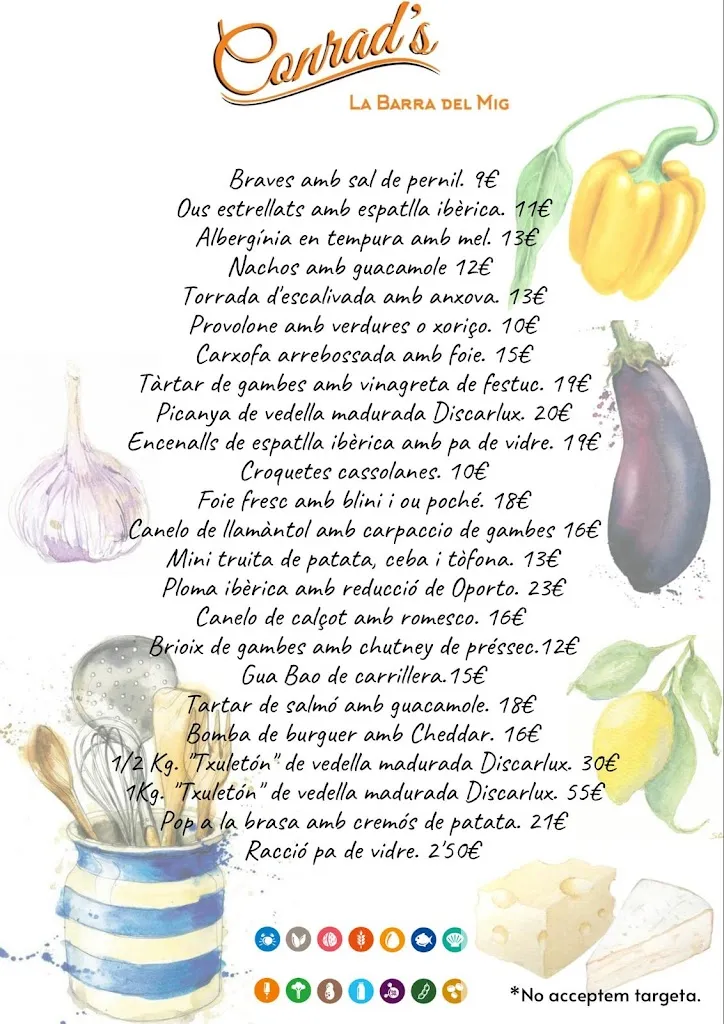 Conrad's
La Barra del Mig
Braves amb sal de pernil. 9€
Ous estrellats amb espatlla ibèrica. 11€
Albergínia en tempura amb mel. 13€
Nachos amb guacamole 12€
Torrada d'escalivada amb anxova. 13€
Provolone amb verdures o xoriço. 10€
Carxofa arrebossada amb foie. 15€
Tàrtar de gambes amb vinagreta de festuc. 19€
Picanya de vedella madurada Discarlux. 20€
Encenalls de espatlla ibèrica amb pa de vidre. 19€
Croquetes cassolanes. 10€
Foie fresc amb blini i ou poché. 18€
Canelo de llamàntol amb carpaccio de gambes 16€
Mini truita de patata, ceba i tòfona. 13€
Ploma ibèrica amb reducció de Oporto. 23€
Canelo de calçot amb romesco. 16€
Brioix de gambes amb chutney de préssec.12€
Gua Bao de carrillera.15€
Tartar de salmó amb guacamole. 18€
Bomba de burguer amb Cheddar. 16€
1/2 Kg. "Txuletón" de vedella madurada Discarlux. 30€
1Kg. "Txuletón" de vedella madurada Discarlux. 55€
Pop a la brasa amb cremós de patata. 21€
Racció pa de vidre. 2'50€
*No acceptem targeta.